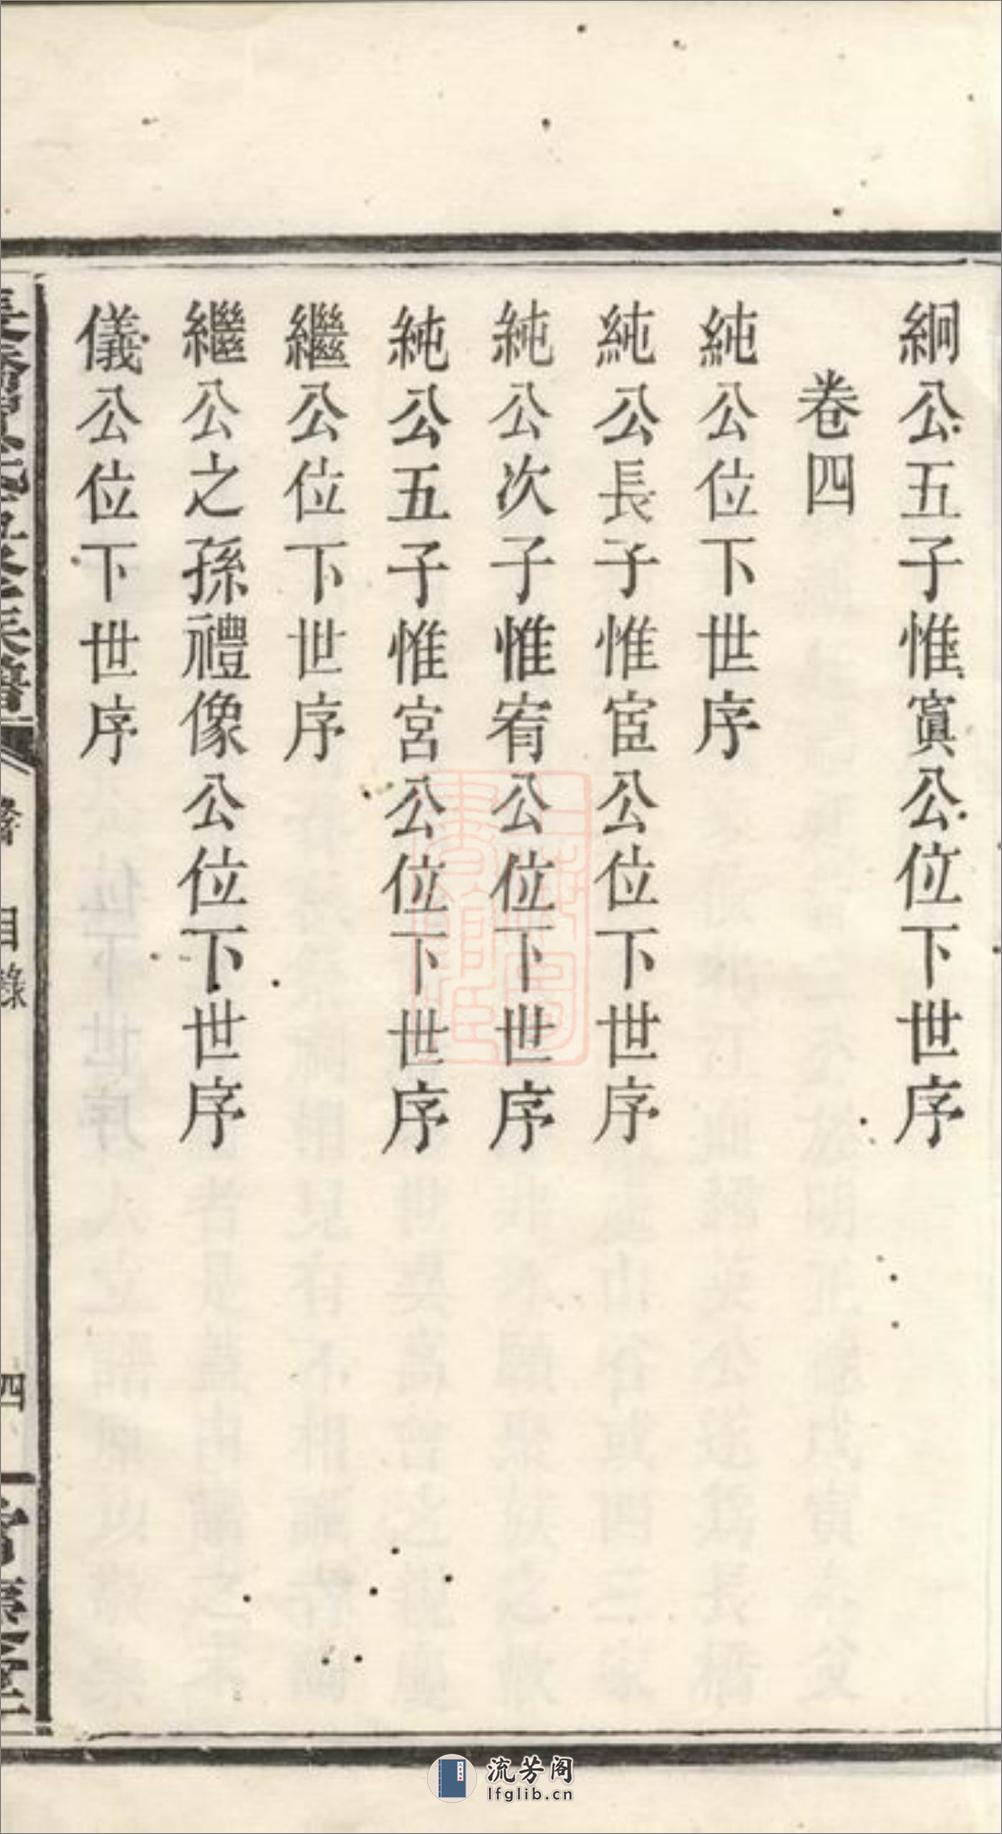 絅公五子惟寘公位下世序
卷四
純公位下世序
純公長子惟宦公位下世序
純公次子惟宥公位下世序
純公五子惟宮公位下世序
繼公位下世序
繼公之孫禮像公位下世序
儀公位下世序
目錄
四
流芳阁
lfglib.cn